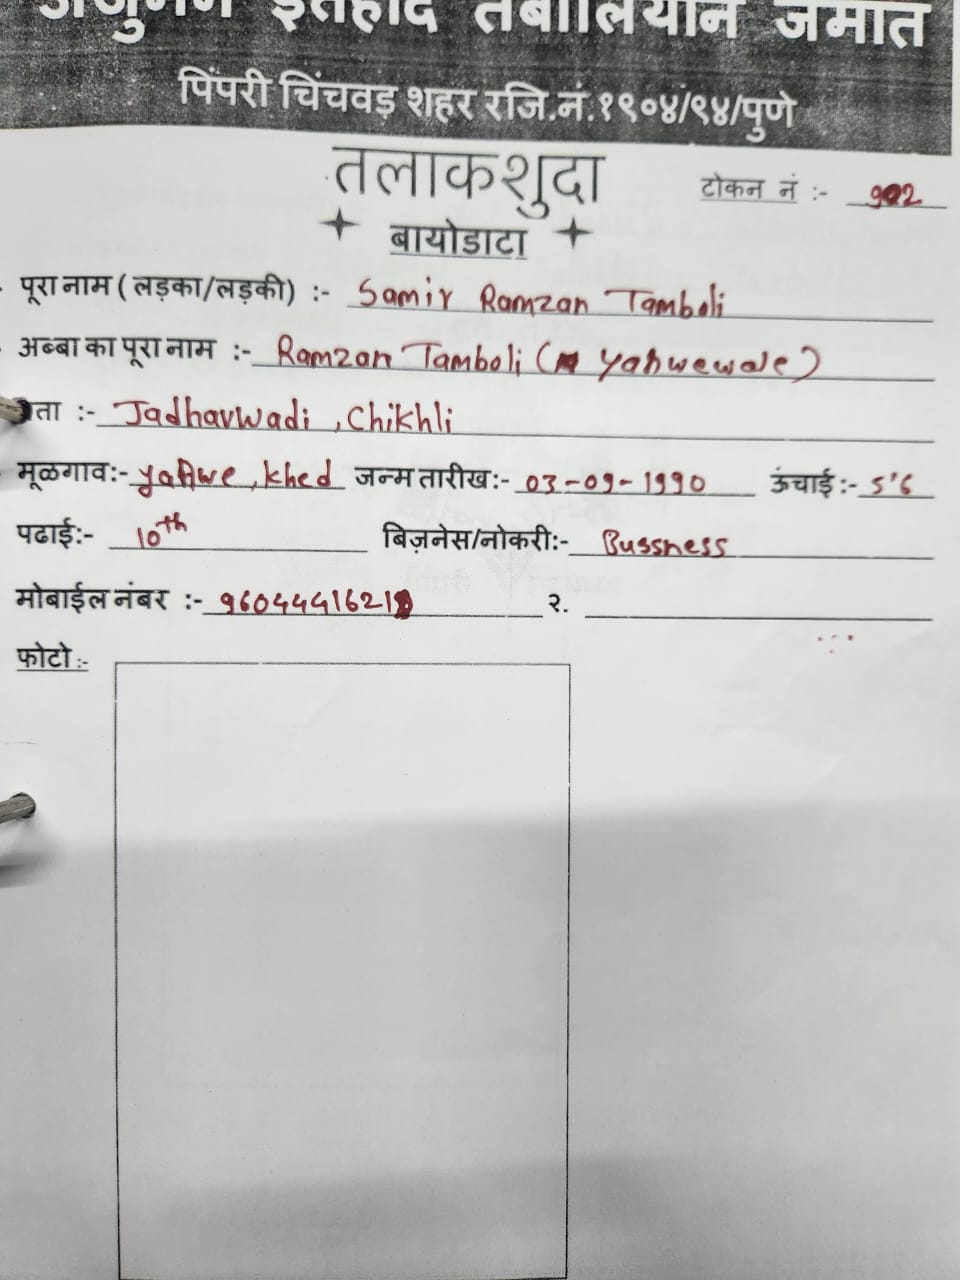 अंजुमन इत्तेहाद तंबोलियान जमात
पिंपरी चिंचवड शहर रजि.नं.१९०४/९४/पुणे
तलाकशुदा
टोकन नं :- 902
बायोडाटा
पूरा नाम ( लड़का/लड़की) :- Samir Ramzan Tamboli
अब्बा का पूरा नाम :- Ramzan Tamboli ( Yahwewale)
ता :- Jadhavwadi , Chikhli
मूळगाव:- Yahwe , Khed जन्म तारीख:- 03-09-1990 ऊंचाई :- 5'6
पढाई:- 10th बिज़नेस/नोकरी:- Bussness
मोबाईल नंबर :- 9604441621 २.
फोटो :-